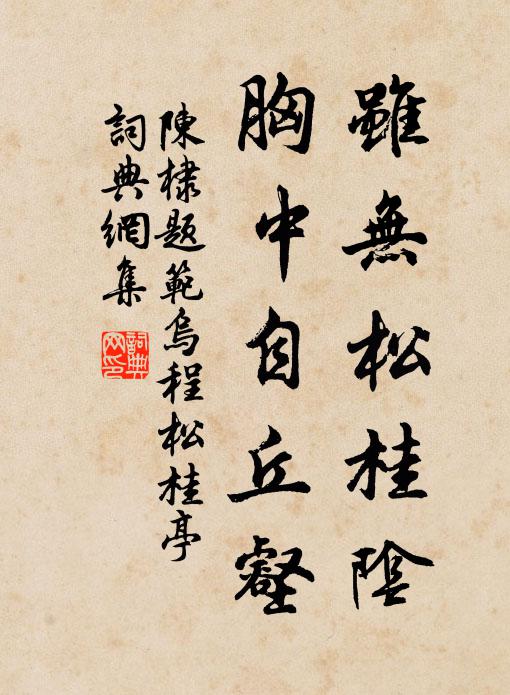 雖無松桂陰
胸中自丘壑
陳棣題範烏程松桂亭
詞典網集
詞典網印